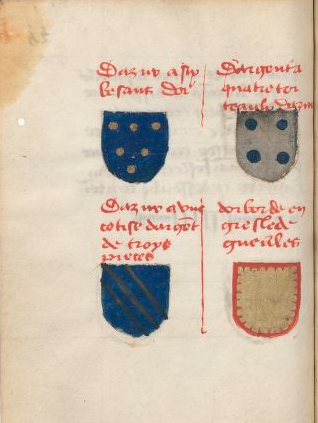 Dazur a six
besans dor
Dargent a
quatre tor
teaulx dazur
Dazur a une
cotise dargēt
de troys
pieces
dor bordé en
greslede
gueulles